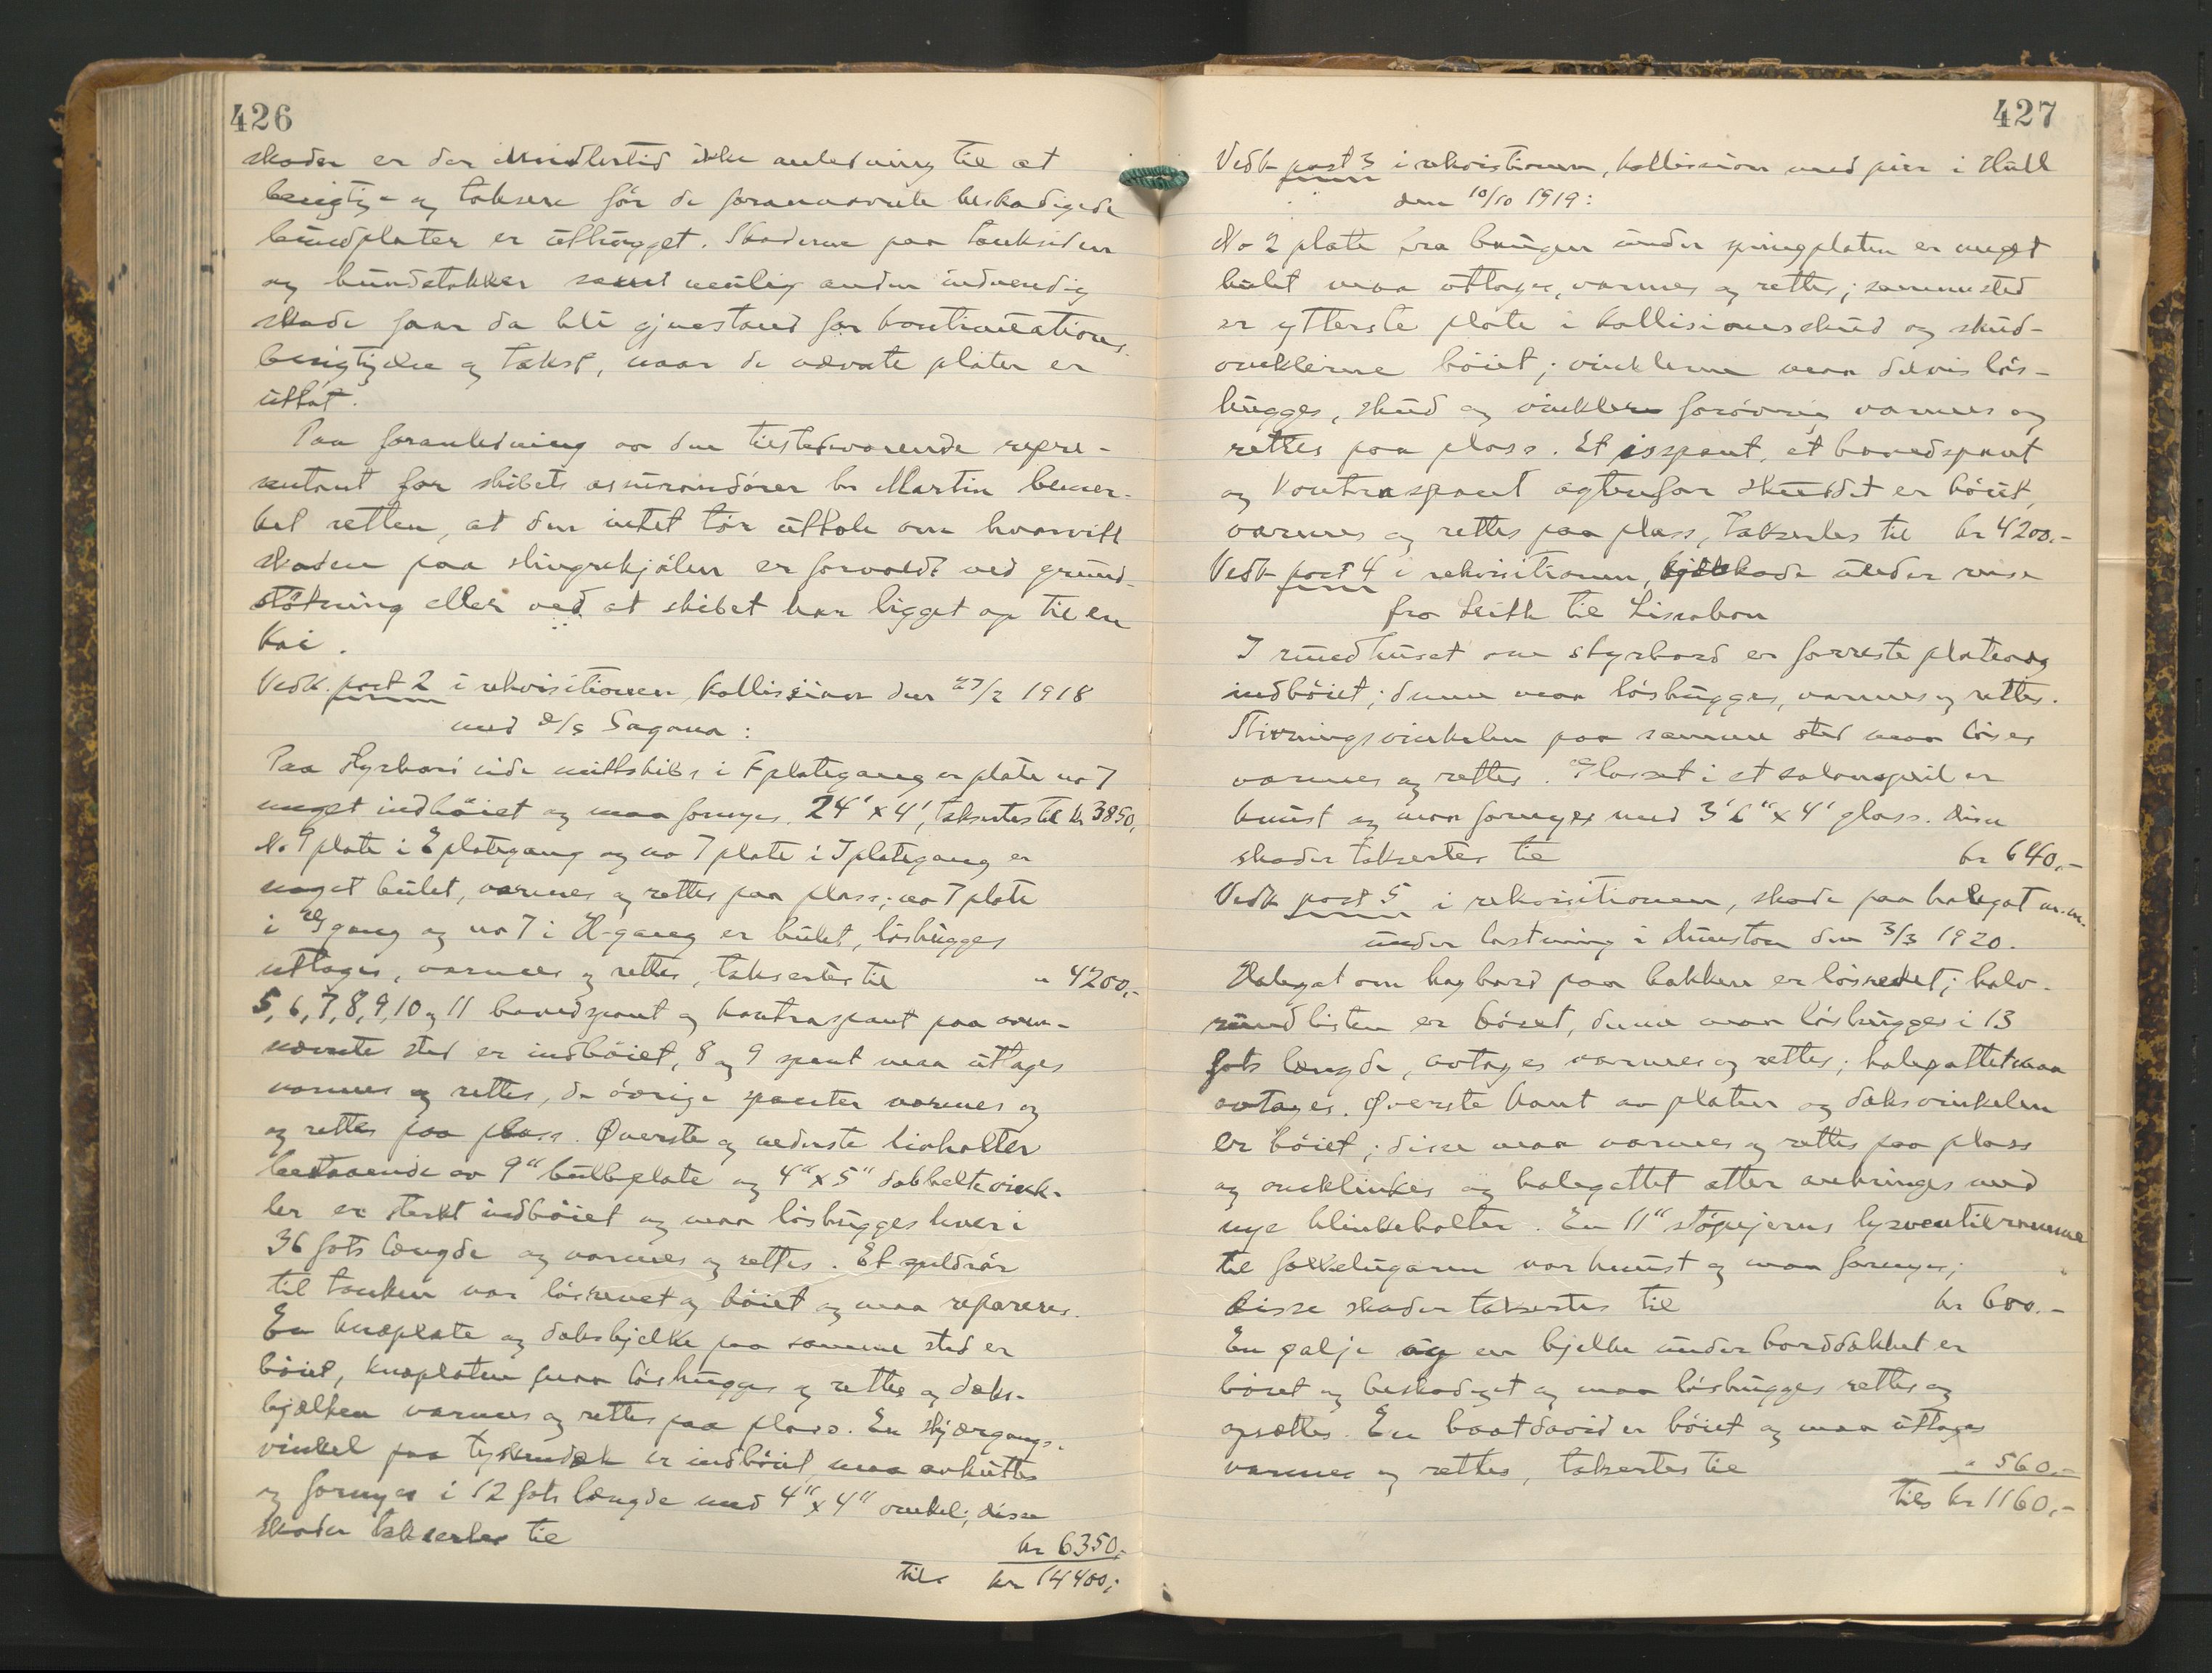 426
skader er der imidlertid ikke anledning til at
besigtige og taksere før de forannævnte beskadigede
bundplater er uthugget. Skaderne paa tanksiden
og bundstokker samt mulig anden indvendig
skade faar da bli gjenstand for kontinuations-
besigtigelse og takst, naar de nævnte plater er
uttat.
Paa foranledning av den tilstedeværende repre-
sentant for skibets assurandører hr Martin bemer-
ket retten, at den intet tør uttale om hvorvidt
skaden paa slingrekjølen er forvoldt ved grund-
støtning eller ved at skibet har ligget op til en
kai.
Vedk. post 2 i rekvisitionen, kollision den 27/2 1918
med D/S Sagona:
Paa Styrbord side mittskibs i F plategang er plate no 7
meget indbøiet og maa fornyes. 24' x 4', taksertes til kr 3850,
No 9 plate i E plategang og no 7 plate i J plategang er
noget bulet, varmes og rettes paa plass; no 7 plate
i G gang og no 7 i H-gang er bulet, løshugges
uttages, varmes og rettes, taksertes til " 4200,-
5, 6, 7, 8, 9, 10 og 11 bovedspant og kontraspant paa oven-
nævnte sted er indbøiet, 8 og 9 spant maa uttages
varmes og rettes, de øvrige spanter varmes og
og rettes paa plass. Øverste og nederste
bestaaende av 9" bulbplate og 4" x 5" dobbelte vink-
ler er sterkt indbøiet og maa løshugges hver i
36 fots længde og varmes og rettes. Et peilrør
til tanken var løsrevet og bøiet og maa repareres.
En knæplate og dæksbjelke paa samme sted er
bøiet, knæplaten maa løshugges og rettes og dæks-
bjælken varmes og rettes paa plass. En skjærgangs-
vinkel paa er indbøiet maa avkuttes
og fornyes i 12 fots længde med 4" x 4" vinkel; disse
skader taksertes til
kr 6350,-
tils kr 14400,-
427
Vedk post 3 i rekvisitionen, kollision med pier i Hull
den 10/10 1919:
No 2 plate fra baugen under springplaten er meget
bulet maa uttages, varmes og rettes; sammesteds
er ytterste plate i kollisionsskud og skud-
vinklerne bøiet; vinklerne maa delvis løs-
hugges, skud og vinkler forøvrig varmes og
rettes paa plass. Et isspant, et bovedspant
og kontraspant agtenfor skuddet er bøiet,
varmes og rettes paa plass, taksertes til kr 4200.-
Vedk post 4 i rekvisitionen, skade under reise
fra Leith til Lissabon
I rundhuset om styrbord er forreste plate
indbøiet; denne maa løshugges, varmes og rettes.
Stivningsvinkelen paa samme sted maa løses
varmes og rettes. Glasset i et salonspeil er
knust og maa fornyes med 3'6" x 4' glass. Disse
skader taksertes til kr 640,-
Vedk post 5 i rekvisitionen, skade paa halegat m.m.
under lastning i den 3/3 1920.
Halegat om bagbord paa bakken er løsrevet; halv-
rundlisten er bøiet, denne maa løshugges i 13
fots længde, avtages varmes og rettes; halegattet maa
avtages. Øverste kant av platen og dæksvinkelen
er bøiet; disse maa varmes og rettes paa plass
og omklinkes og halegattet atter anbringes med
nye klinkebolter. En 11" støpejerns lysventilramme
til folkelugaren var knust og maa fornyes;
disse skader taksertes til kr 600.-
En galje og en bjelke under borddækket er
bøiet og beskadiget og maa løshugges rettes og
opsættes. En baatdavid er bøiet og maa uttages
varmes og rettes, taksertes til " 560,-
tils kr 1160,-